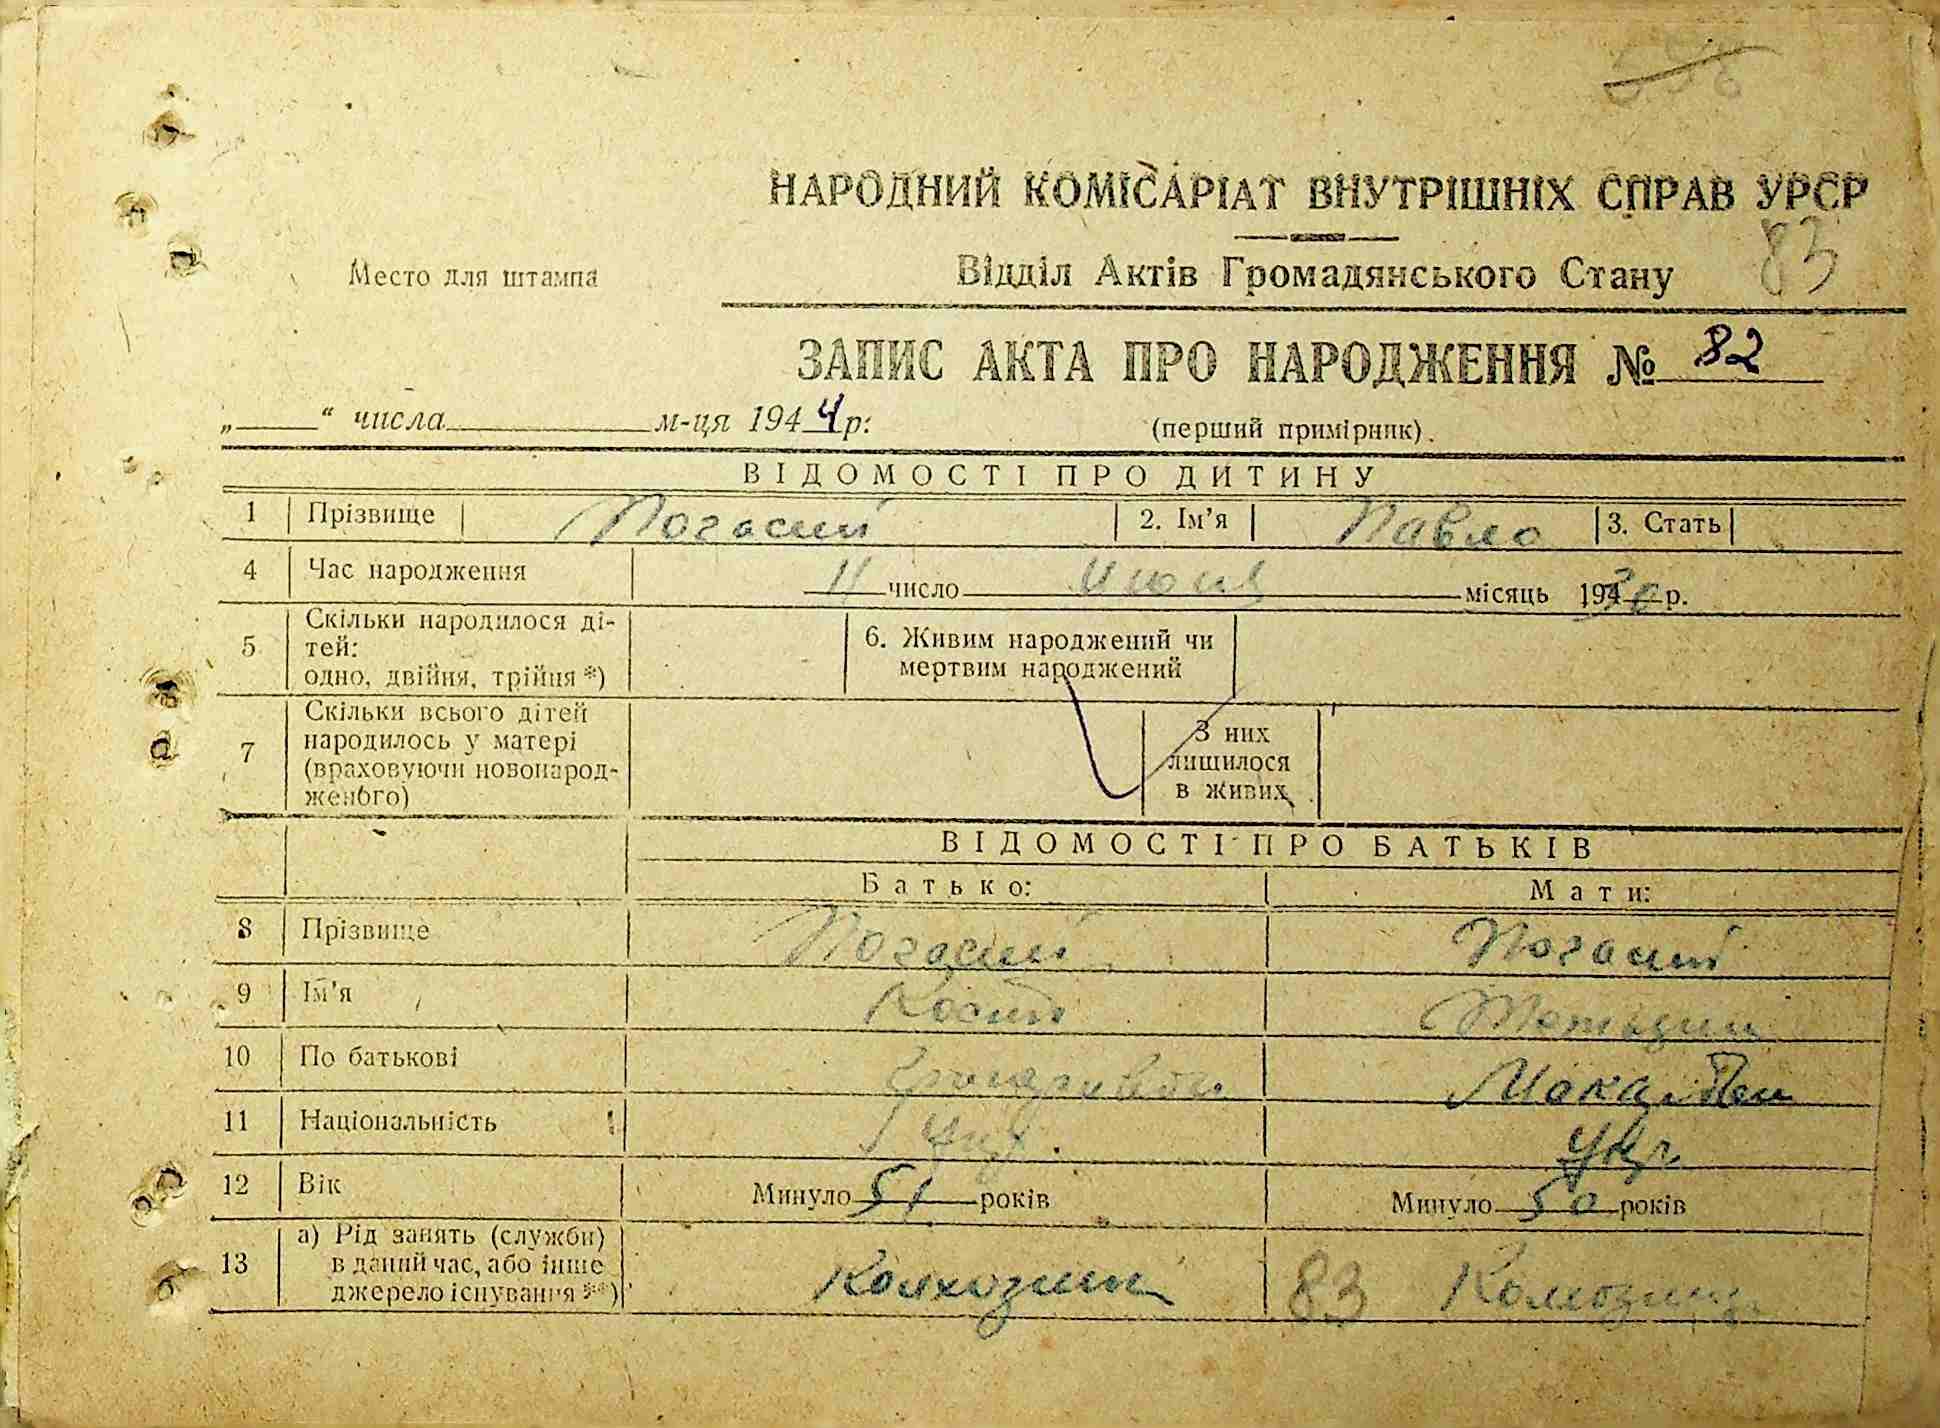 НАРОДНИЙ КОМІСАРІАТ ВНУТРІШНІХ СПРАВ УРСР
83
Место для штампа
Відділ Актів Громадянського Стану
ЗАПИС АКТА ПРО НАРОДЖЕННЯ № 82
„ “ числа м-ця 1944 р.
(перший примірник).
ВІДОМОСТІ ПРО ДИТИНУ
1 Прізвище Погасий 2. Ім'я Павло 3. Стать
4 Час народження 11 число июня місяць 1930 р.
5 Скільки народилося ді-
тей:
одно, двійня, трійня *)
6. Живим народжений чи
мертвим народжений
7 Скільки всього дітей
народилось у матері
(враховуючи новонарод-
женого)
З них
лишилося
в живих
ВІДОМОСТІ ПРО БАТЬКІВ
Батько: Мати:
8 Прізвище Погасий Погасий
9 Ім'я
10 По батькові
11 Національність Укр. Укр.
12 Вік Минуло 51 років Минуло 50 років
13 а) Рід занять (служби)
в даний час, або інше
джерело існування **)
Колхозник 83 Колхозниця